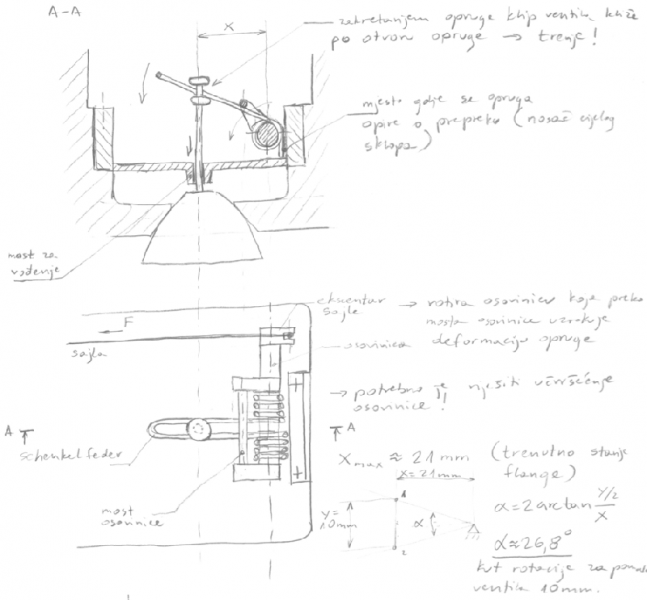 A-A
x
zakretanjem opruge klip ventila kliže
po otvoru opruge → trenje!
mjesto gdje se opruga
opire o prepreku (nosač cijelog
sklopa)
most za
vođenje
F
sajla
ekscentar
sajle
→ rotira osovinicu koja preko
mosta osovinice uzrokuje
deformaciju opruge
osovinica
→ potrebno je riješiti učvršćenje
osovinice!
A
A
schenkelfeder
most
osovinice
Xmax ≈ 21 mm (trenutno stanje
flange)
x=21mm
1
y=
10mm
α
2
α=2arctan Y/2
X
α≈26,8°
kut rotacije za pomak
ventila 10mm.